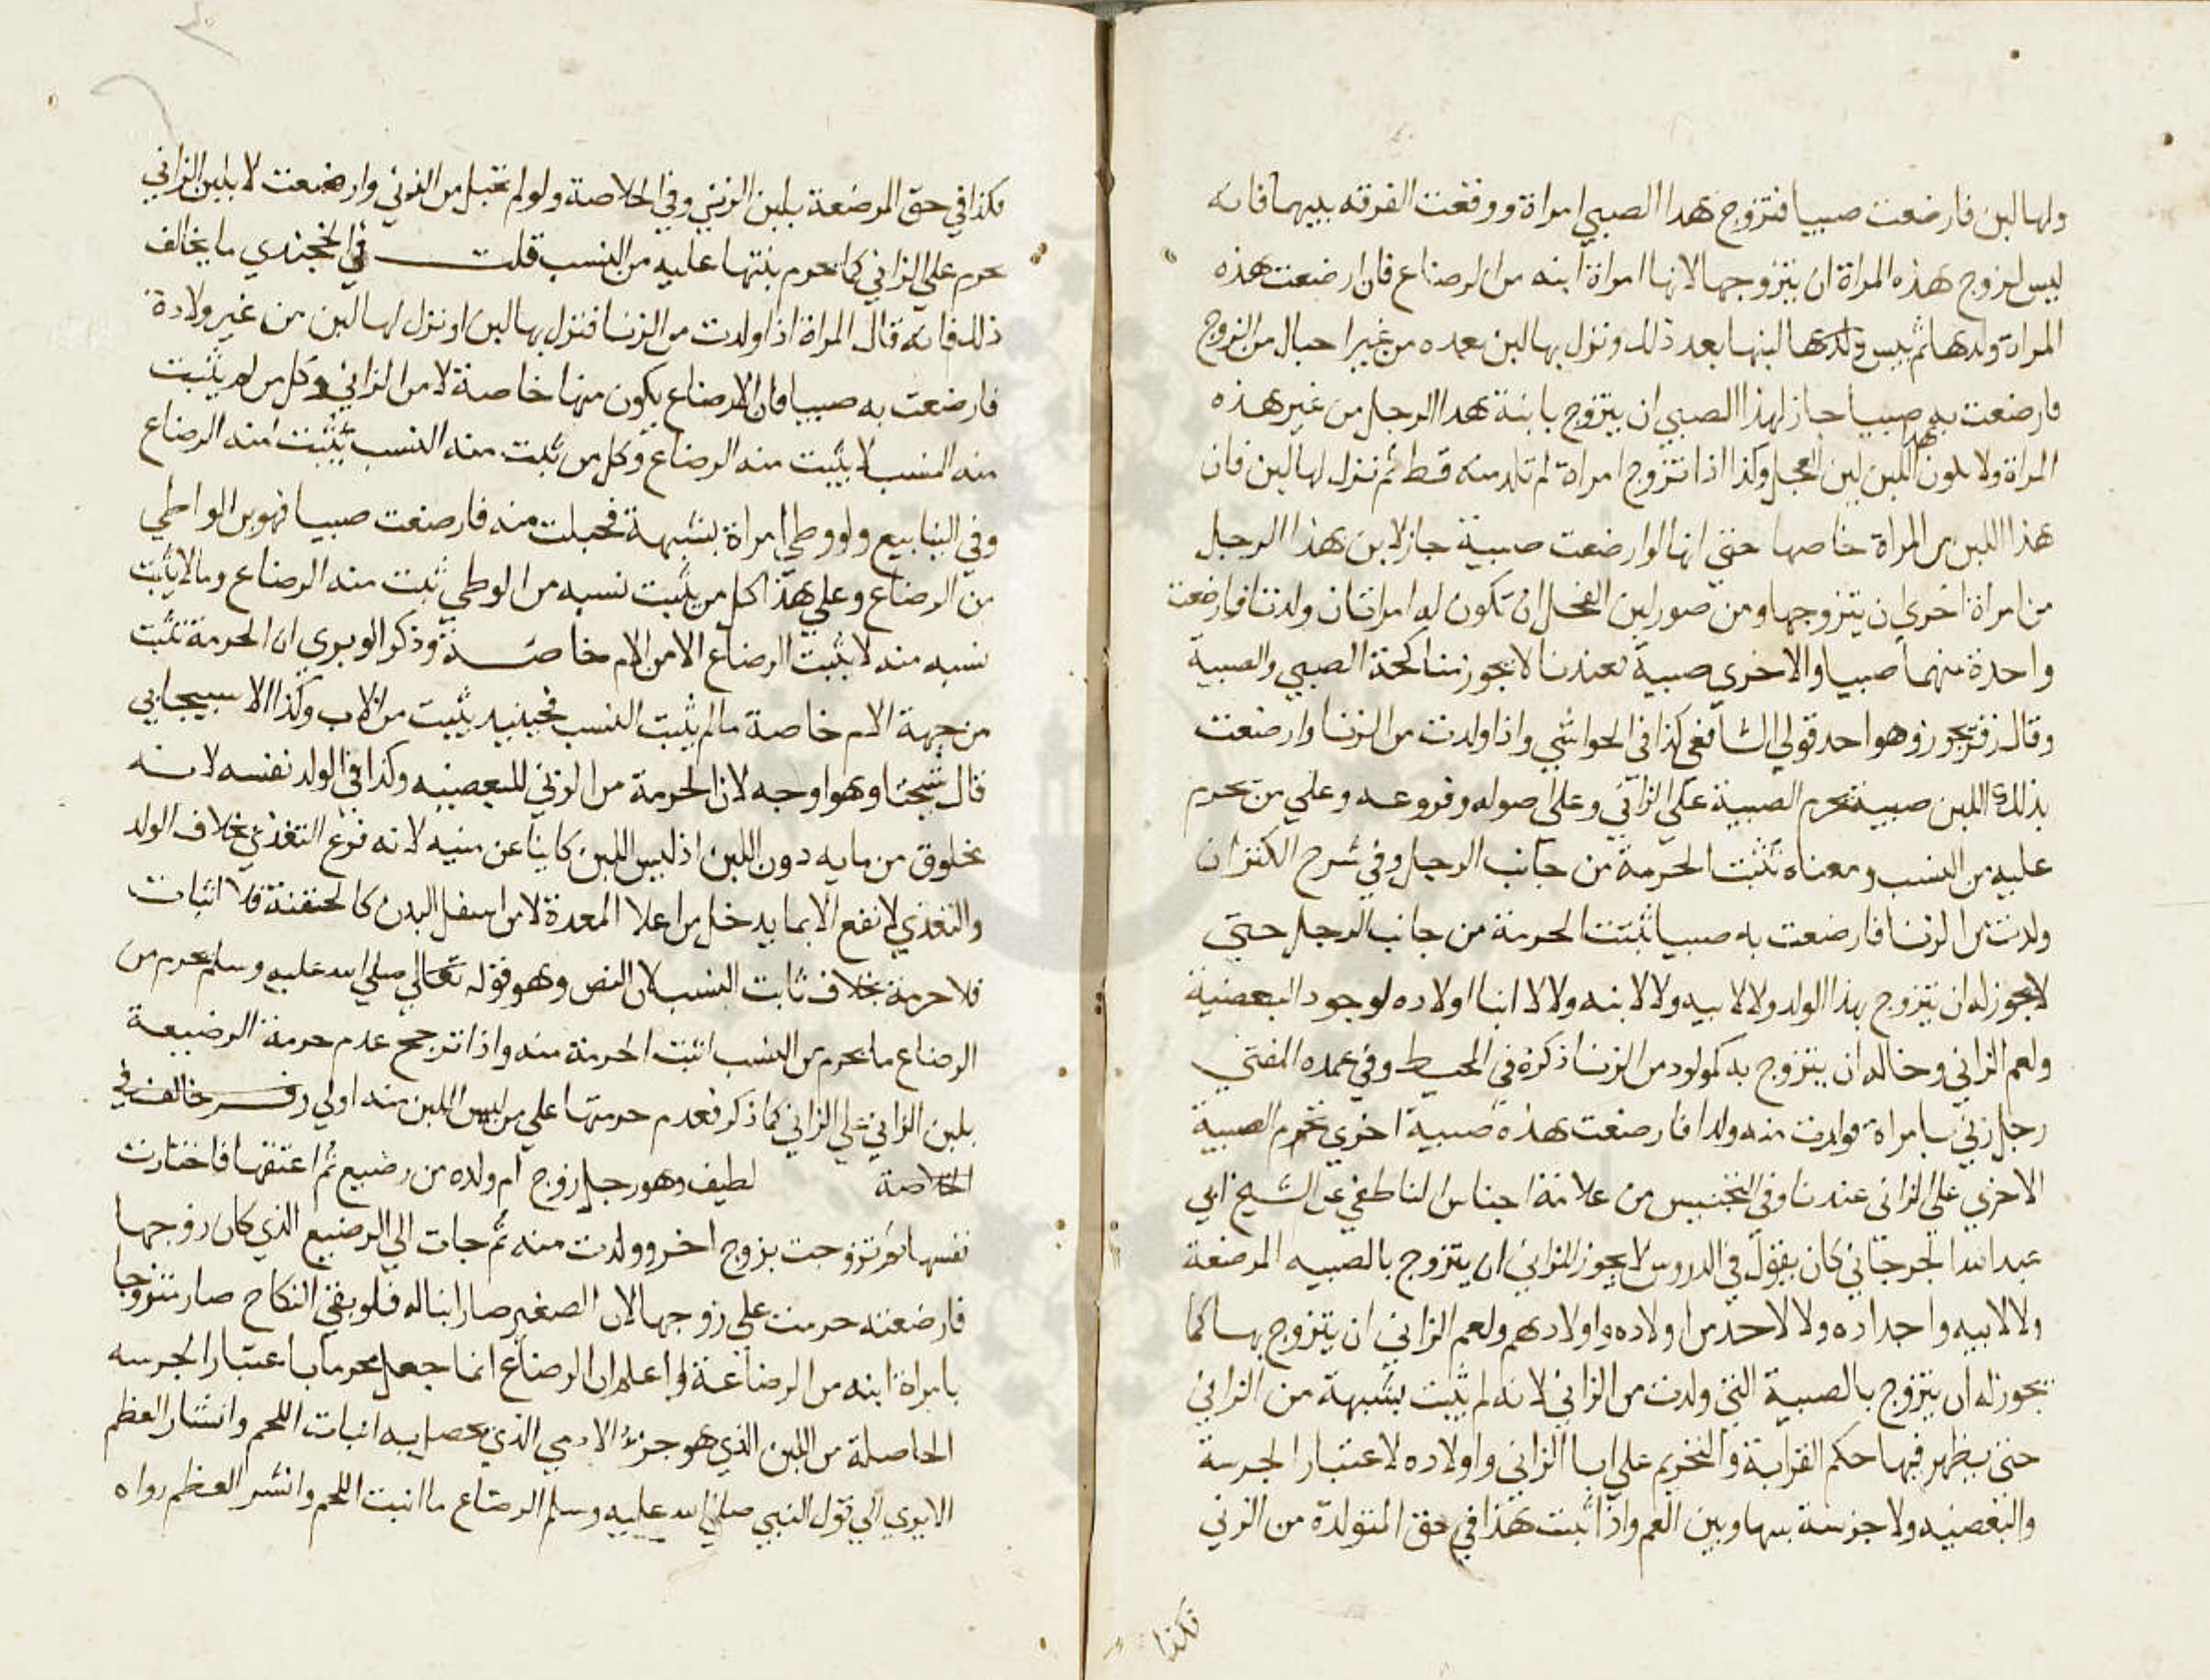 ولها لبن فارضعت صبيا فتزوج هدا الصبي امراة ووقعت الفرقه بينهما فانه
ليس لزوج هذه المراة ان يتزوجها لانها امراة ابنه من الرضاع فان ارضعت هذه
المراة ولدها ثم يبس ولدها لبنها بعد ذلك ونزل بها لبن بعده من غير احبال من الزوج
فارضعت به صبيا جاز لهذا الصبي ان يتزوج بابنة هدا الرجل من غير هذه
المراة ولا يكون هذا اللبن لبن الفحل وكذا اذا تزوج امراة لم تلد منه قط ثم نزل لها لبن فان
هذا اللبن من المراة خاصها حتي انها لو ارضعت صبية جاز لابن هذا الرجل
من امراة اخري ان يتزوجها ومن صور لبن الفحل ان تكون له امراتان ولدتا فارضعت
واحدة منهما صبيا والاخري صبية فعندنا لا يجوز مناكحة الصبي والصبية
وقال زفر يجوز وهو احد قولي الشافعي كذا في الحواشي واذا ولدت من الزنا وارضعت
بذلك اللبن صبية تحرم الصبية علي الزاني وعلي اصوله وفروعه وعلي من يحرم
عليه من النسب ومعناه تثبت الحرمة من جانب الرجل وفي شرح الكنز ان
ولدت من الزنا فارضعت به صبيا ثبتت الحرمة من جانب الرجل حتي
لا يجوز له ان يتزوج بهذا الولد ولا لابيه ولا لابنه ولا لابنا اولاده لوجود البعضية
ولعم الزاني وخاله ان يتزوج به كمولود من الزنا ذكره في المحيط وفي عمده المفتي
رجل زني بامراة فولدت منه ولدا فارضعت هذه صبية اخري تحرم الصبية
الاخري علي الزاني عندنا وفي التجنيس من علامة اجناس الناطفي عن الشيخ ابي
عبد الله الجرجاني كان يقول في الدروس لا يجوز للزاني ان يتزوج بالصبيه المرضعة
ولا لابيه واجداده ولا لاحد من اولاده واولادهم ولعم الزاني ان يتزوج بها كما
يجوز له ان يتزوج بالصبية التي ولدت من الزاني لانه لم يثبت بشبهة من الزاني
حتي يظهر فيها حكم القرابة والتحريم علي ابا الزاني واولاده لاعتبار الجزيية
والبعضيه ولا جزيية بينها وبين العم واذا ثبت هذا في حق المتولدة من الزني
فكذا
فكذا في حق المرضعة بلبن الزني وفي الخلاصة ولو لم تحبل من الزني وارضعت لا بلبن الزاني
تحرم علي الزاني كما تحرم بنتها عليه من النسب قلت في الخجندي ما يخالف
ذلك فانه قال المراة اذا ولدت من الزنا فنزل بها لبن او نزل لها لبن من غير ولادة
فارضعت به صبيا فان الارضاع يكون منها خاصة لا من الزاني وكل من لم يثبت
منه النسب لا يثبت منه الرضاع وكل من ثبت منه النسب يثبت منه الرضاع
وفي الينابيع ولو وطي امراة بشبهة فحبلت منه فارضعت صبيا فهو بن الواطي
من الرضاع وعلي هذا كل من يثبت نسبه من الوطي ثبت منه الرضاع وما لا يثبت
نسبه منه لا يثبت الرضاع الا من الام خاصة وذكر الوبري ان الحرمة تثبت
من جهة الام خاصة ما لم يثبت النسب فحينيد يثبت من الاب وكذا الاسبيجابي
قال شيخنا وهو اوجه لان الحرمة من الزني للبعضيه وكذا في الولد نفسه لانه
مخلوق من مايه دون اللبن اذ ليس اللبن كاينا عن منيه لانه فرع التغذي بخلاف الولد
والتغذي لا نقع الا بما يدخل من اعلا المعدة لا من اسفل البدن كالحقنة فلا اثبات
فلا حرمة بخلاف ثابت النسب لان النص وهو قوله تعالي صلي الله عليه وسلم يحرم من
الرضاع ما يحرم من النسب اثبت الحرمة منه واذا ترجح عدم حرمة الرضيعة
بلبن الزاني علي الزاني كما ذكر فعدم حرمتها علي من ليس اللبن منه اولي خالف في
الخلاصة لطيف وهو رجل زوج ام ولده من رضيع ثم اعتقها فاختارت
نفسها ثم تزوجت بزوج اخر وولدت منه ثم جات الي الرضيع الذي كان زوجها
فارضعته حرمت علي زوجها لان الصغير صار ابنا له فلو بقي النكاح صار متزوجا
بامراة ابنه من الرضاعة واعلم ان الرضاع انما جعل محرما باعتبار الجزييه
الحاصلة من اللبن الذي هو جزء الادمي الذي يحصل به انبات اللحم وانشار العظم
الا يري الي قول النبي صلي الله عليه وسلم الرضاع ما انبت اللحم وانشر العظم رواه